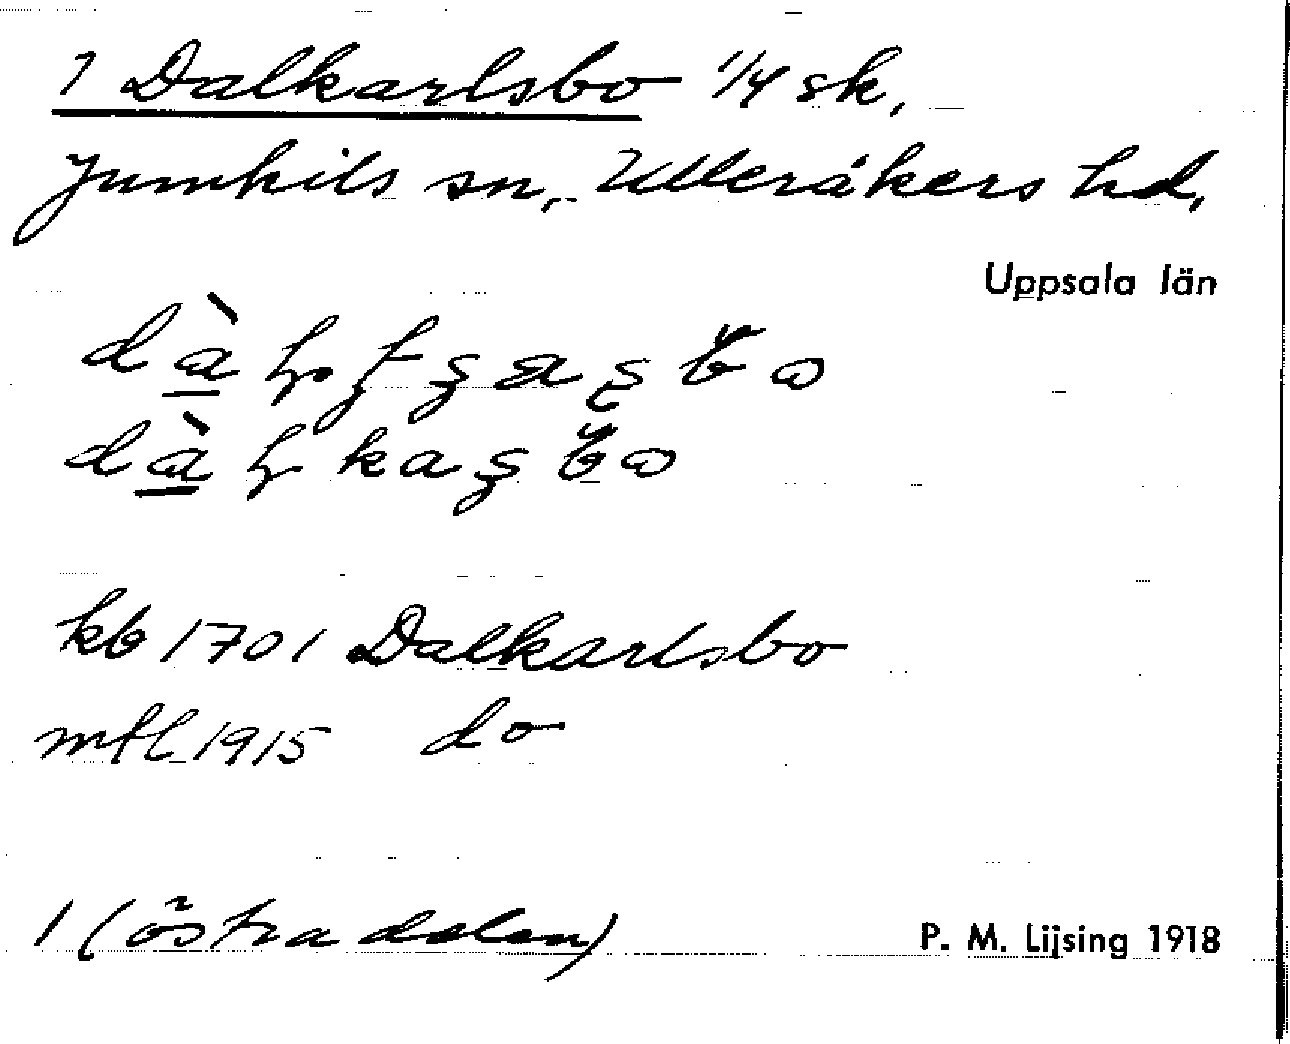 1 Dalkarlsbo 1/4 sk.
Jumkils sn., Ulleråkers hd.
Uppsala län
kb 1701 Dalkarlsbo
mtl. 1915 do
1 (östra delen)
P. M. Lijsing 1918